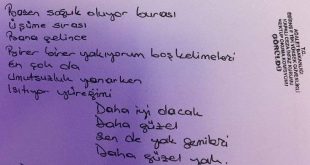 Bazen soğuk oluyor burası
Üşüme sırası
Bana gelince
Birer birer yakıyorum boş kelimeleri
En çok da
Umutsuzluk yanarken
Isıtıyor yüreğimi
Daha iyi olacak
Daha güzel
Sen de yak gemileri
Daha güzel yak.
T.C.
ADALET BAKANLIĞI
GÖRÜLDÜ